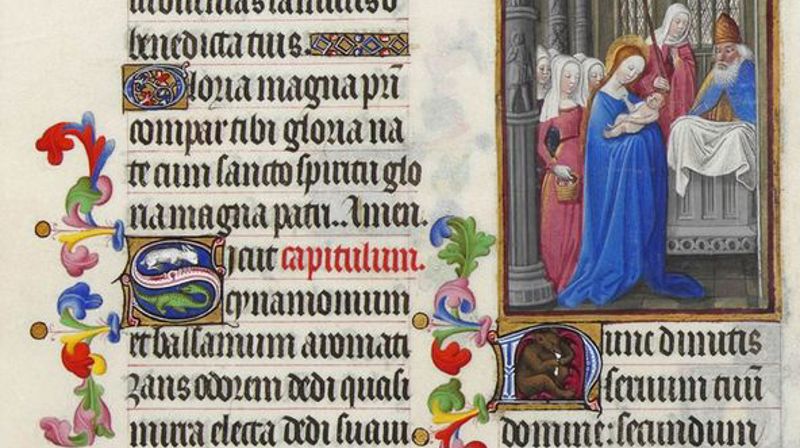 benedicta tuis.
Gloria magna pr̄i
compar tibi gloria na
te cum sancto spiritu glo
ria magna patri. Amen.
Sicut capitulum.
cynamomum
et balsamum aromati
zans odorem dedi quasi
mirra electa dedi suaui
Nunc dimitis
seruum tuū
domine: secundum